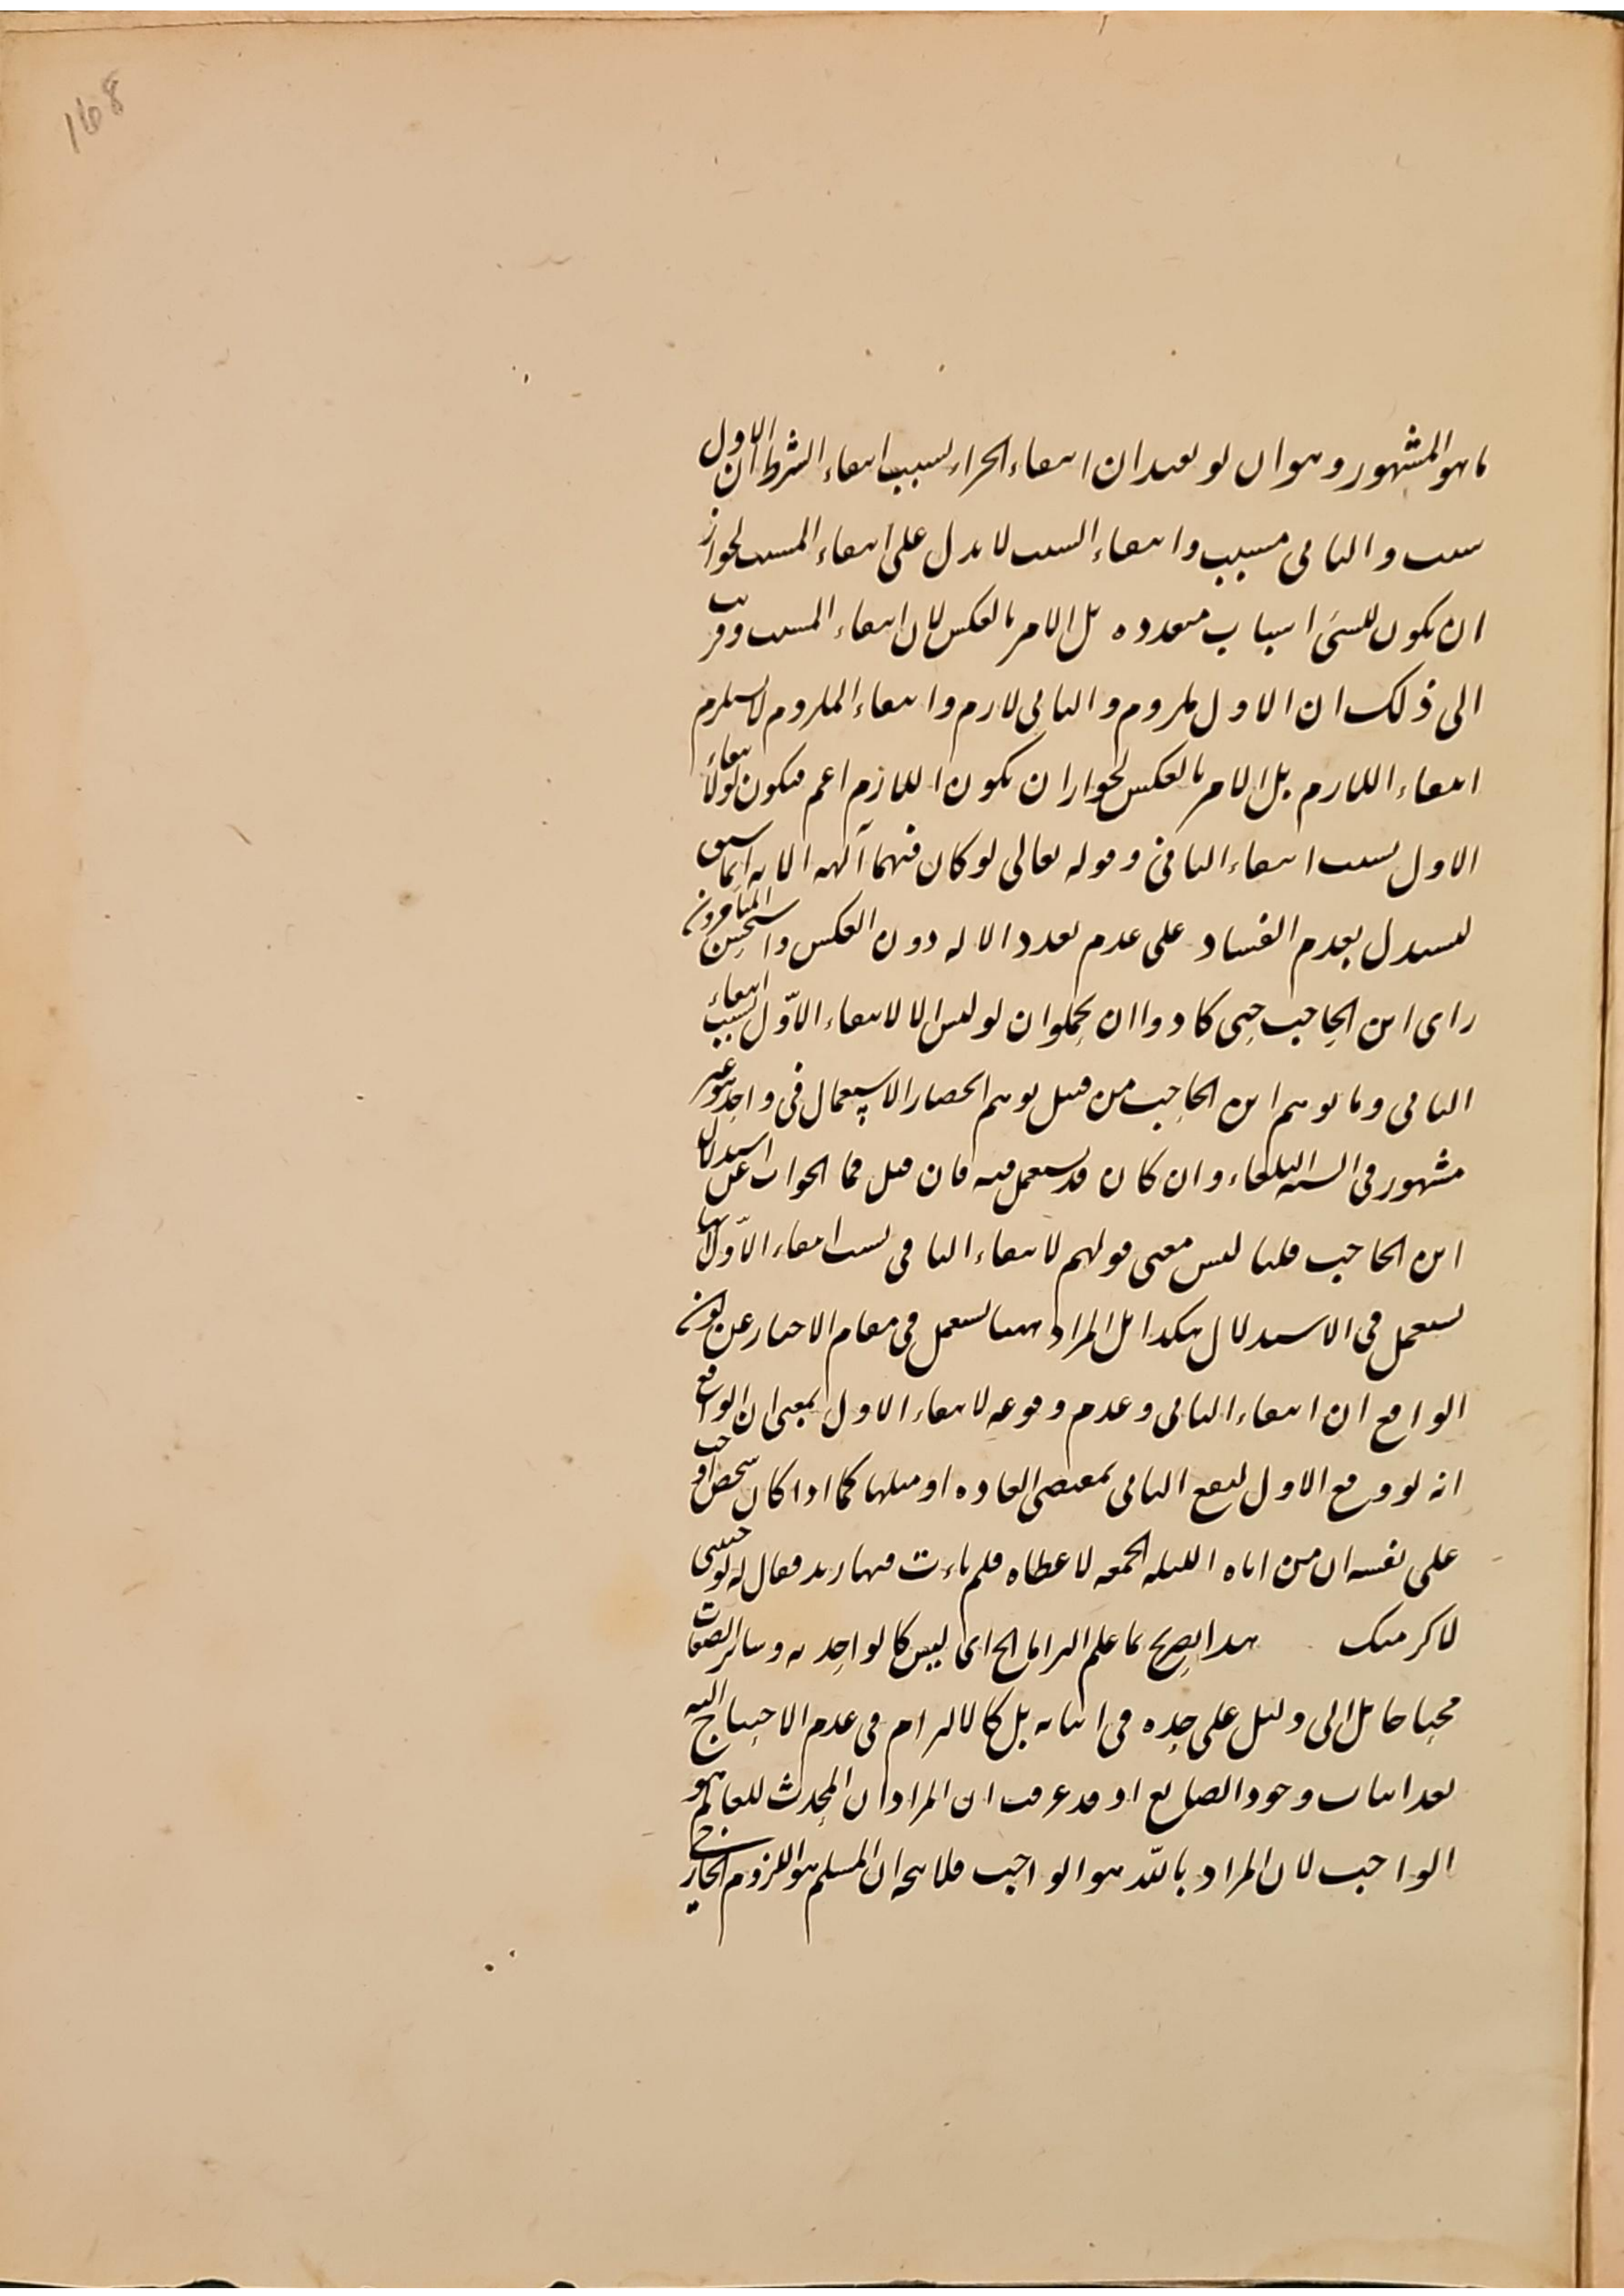 168
ما هو المشهور وهو ان لو يفيد ان انتفاء الجزاء بسبب انتفاء الشرط ان الاول
سبب والثاني مسبب وانتفاء السبب لا يدل على انتفاء المسبب لجواز
ان يكون للشئ اسباب متعدده بل الامر بالعكس لان انتفاء المسبب وقريب
الى ذلك ان الاول ملزوم والثاني لازم وانتفاء الملزوم لا يستلزم
انتفاء اللازم بل الامر بالعكس لجواز ان يكون اللازم اعم فيكون لو لانتفاء
الاول بسبب انتفاء الثاني وقوله تعالى لو كان فيهما آلهه الايه انما سيق
ليستدل بعدم الفساد على عدم تعدد الاله دون العكس واستحسن المتاخرون
راى ابن الحاجب حتى كادوا ان يجملوا ان لو ليس الا لانتفاء الاوّل بسبب انتفاء
الثاني وما توهم ابن الحاجب من قبيل توهم انحصار الاستعمال في واحد هو غير
مشهور في السنه البلغاء وان كان قد يستعمل فيه فان قيل فما الجواب عن استدلال
ابن الحاجب قلنا ليس معنى قولهم لانتفاء الثاني بسبب انتفاء الاوّل انها
يستعمل في الاستدلال هكذا بل المراد انها يستعمل في مقام الاخبار عن كون
الواقع ان انتفاء الثاني وعدم وقوعه لانتفاء الاول بمعنى ان الواقع
انه لو وقع الاول ليقع الثاني بمقتضى العاده او مثلها كما اذا كان شخص اوجب
على نفسه ان من اتاه الليله الجمعه لاعطاه فلم يات فيها زيد فقال له لو جئتني
لاكرمتك هذا تصريح بما علم التزاما الخ اى ليس كالواحديه وسائر الصفات
محتاجا بل الى دليل على حده في اثباته بل كالالتزام في عدم الاحتياج اليه
بعد اثبات وجود الصانع اذ قد عرفت ان المراد ان المحدث للعالم هو
الواجب لان المراد بالله هو الواجب فلا يتجه ان المسلم هو اللزوم الخارجي